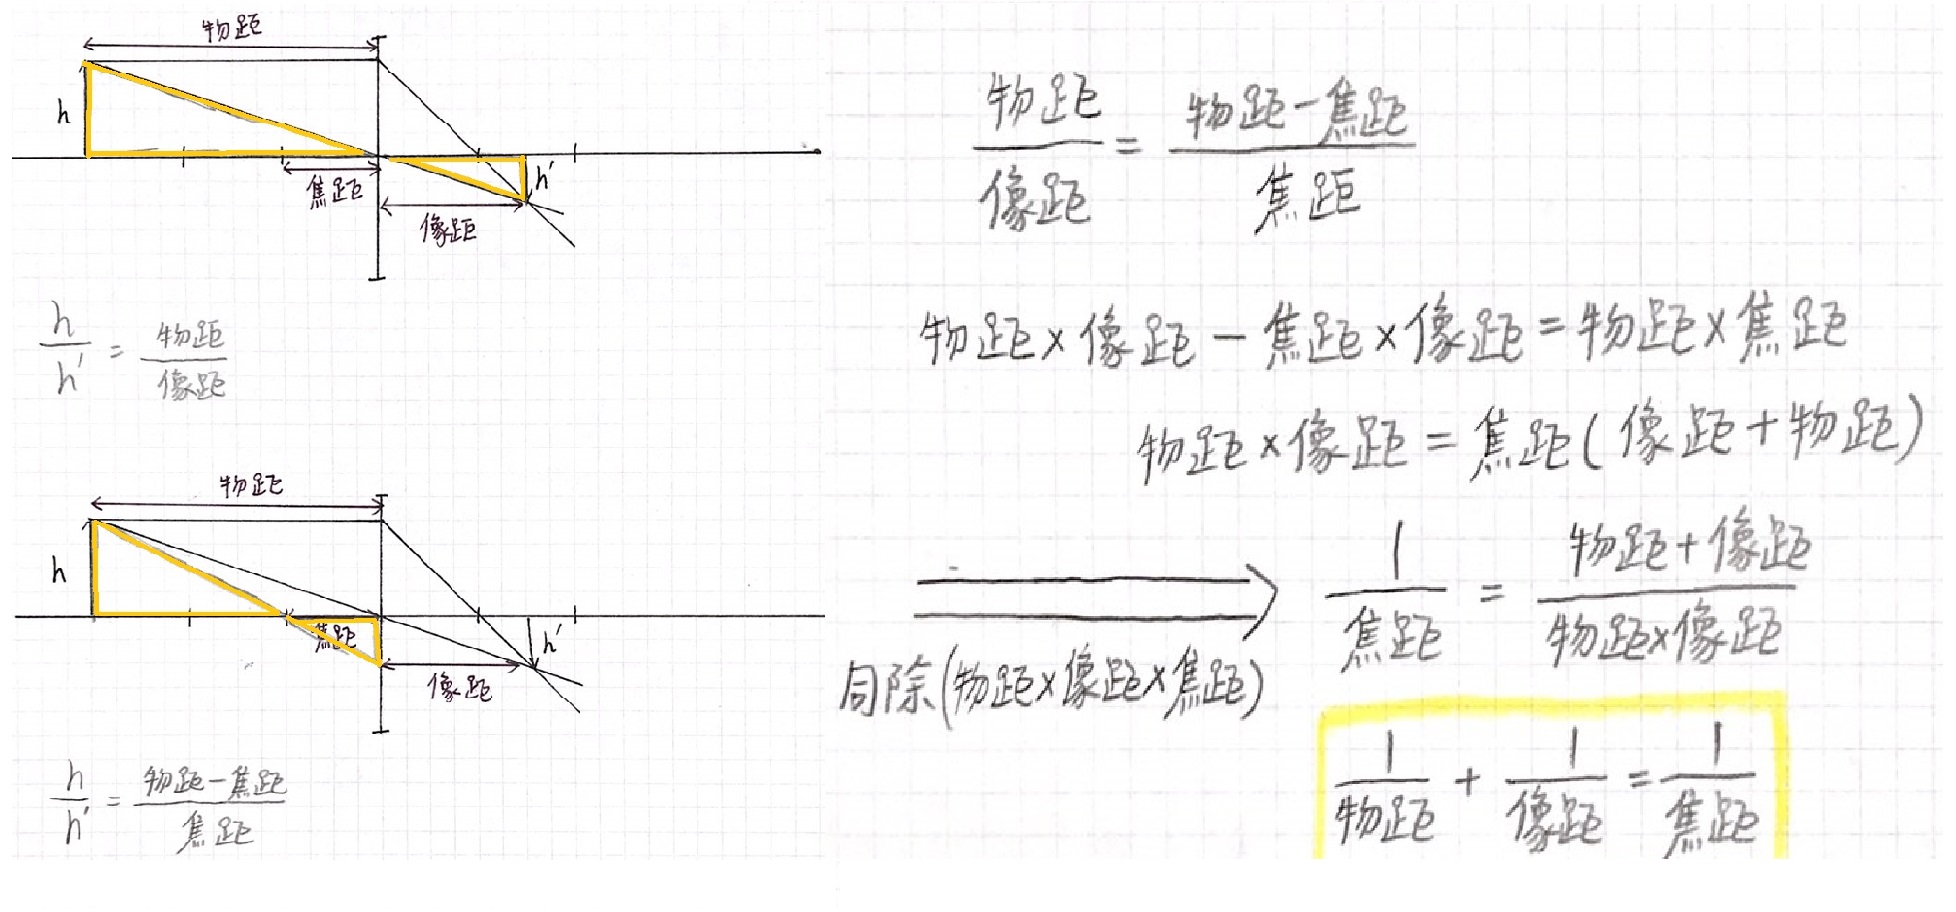 物距
h
焦距
h'
像距
h/h' = 物距/像距
物距
h
焦距
h'
像距
h/h' = 物距-焦距/焦距
物距/像距 = 物距-焦距/焦距
物距×像距-焦距×像距=物距×焦距
物距×像距=焦距(像距+物距)
同除(物距×像距×焦距)
1/焦距 = 物距+像距/物距×像距
1/物距 + 1/像距 = 1/焦距